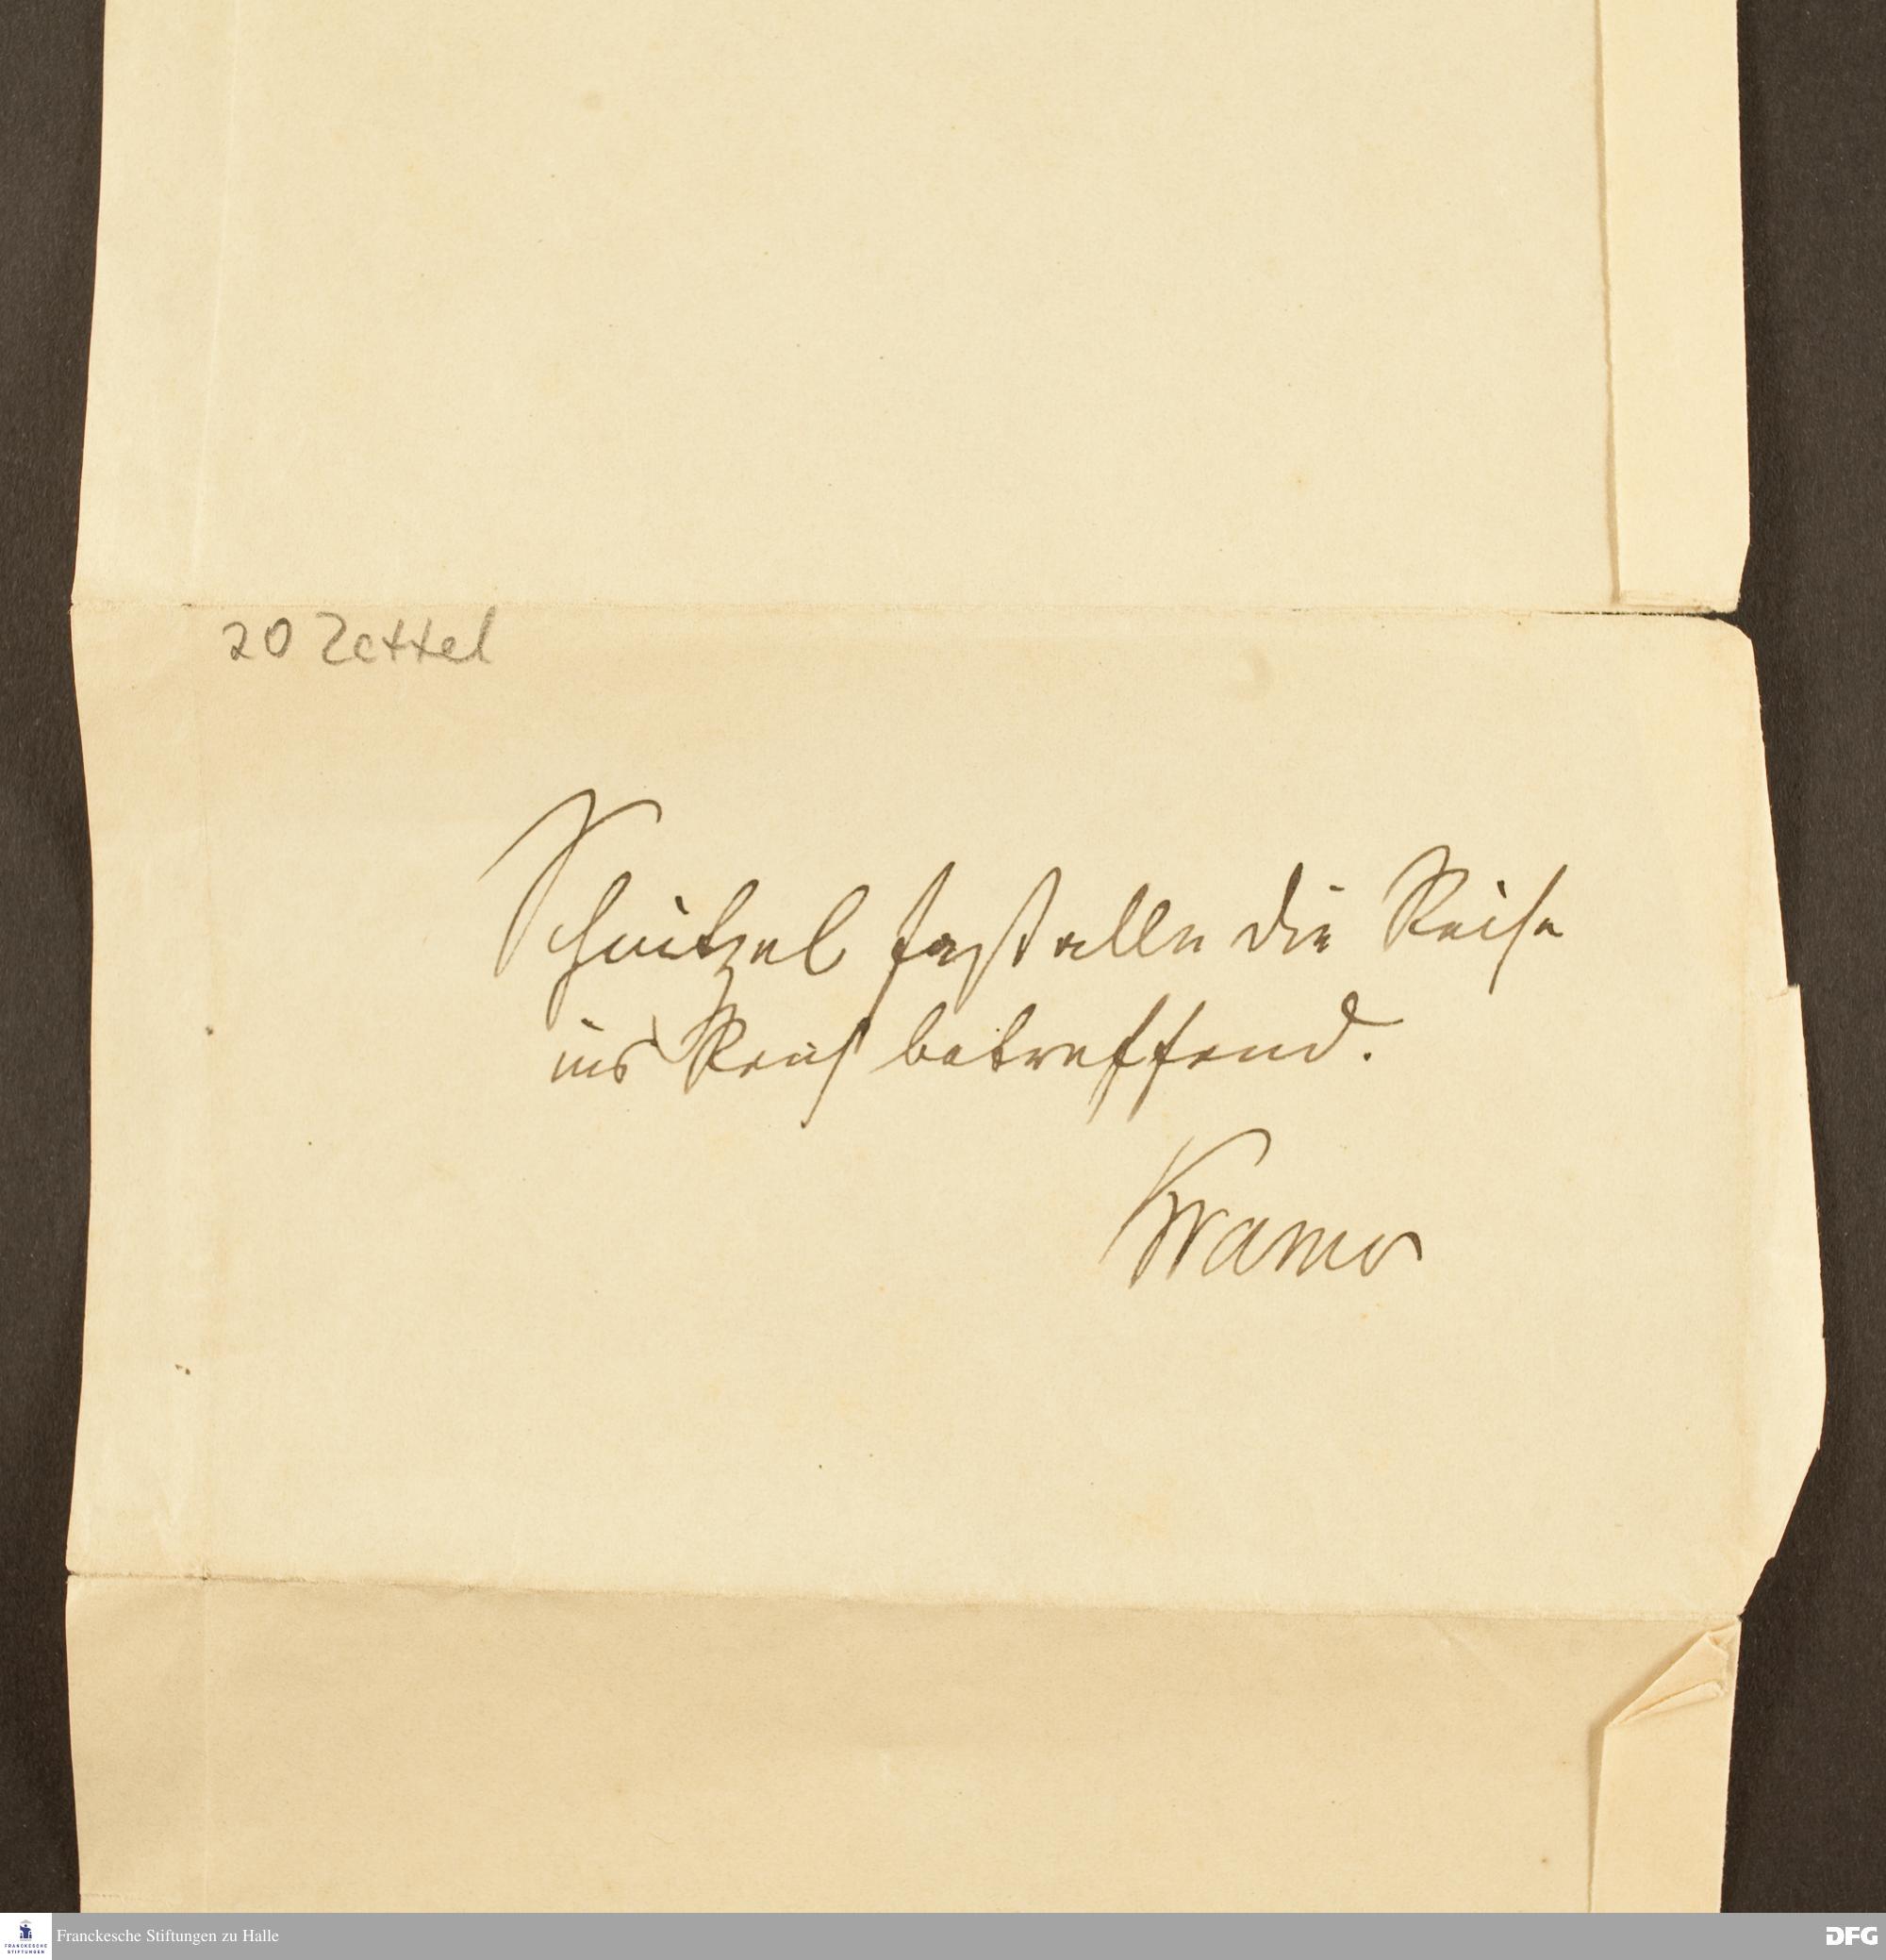 20 Zettel
Schnitzel fast alle die Reise
ins Reich betreffend.
Kramer
FRANCKESCHE
STIFTUNGEN
Franckesche Stiftungen zu Halle
DFG